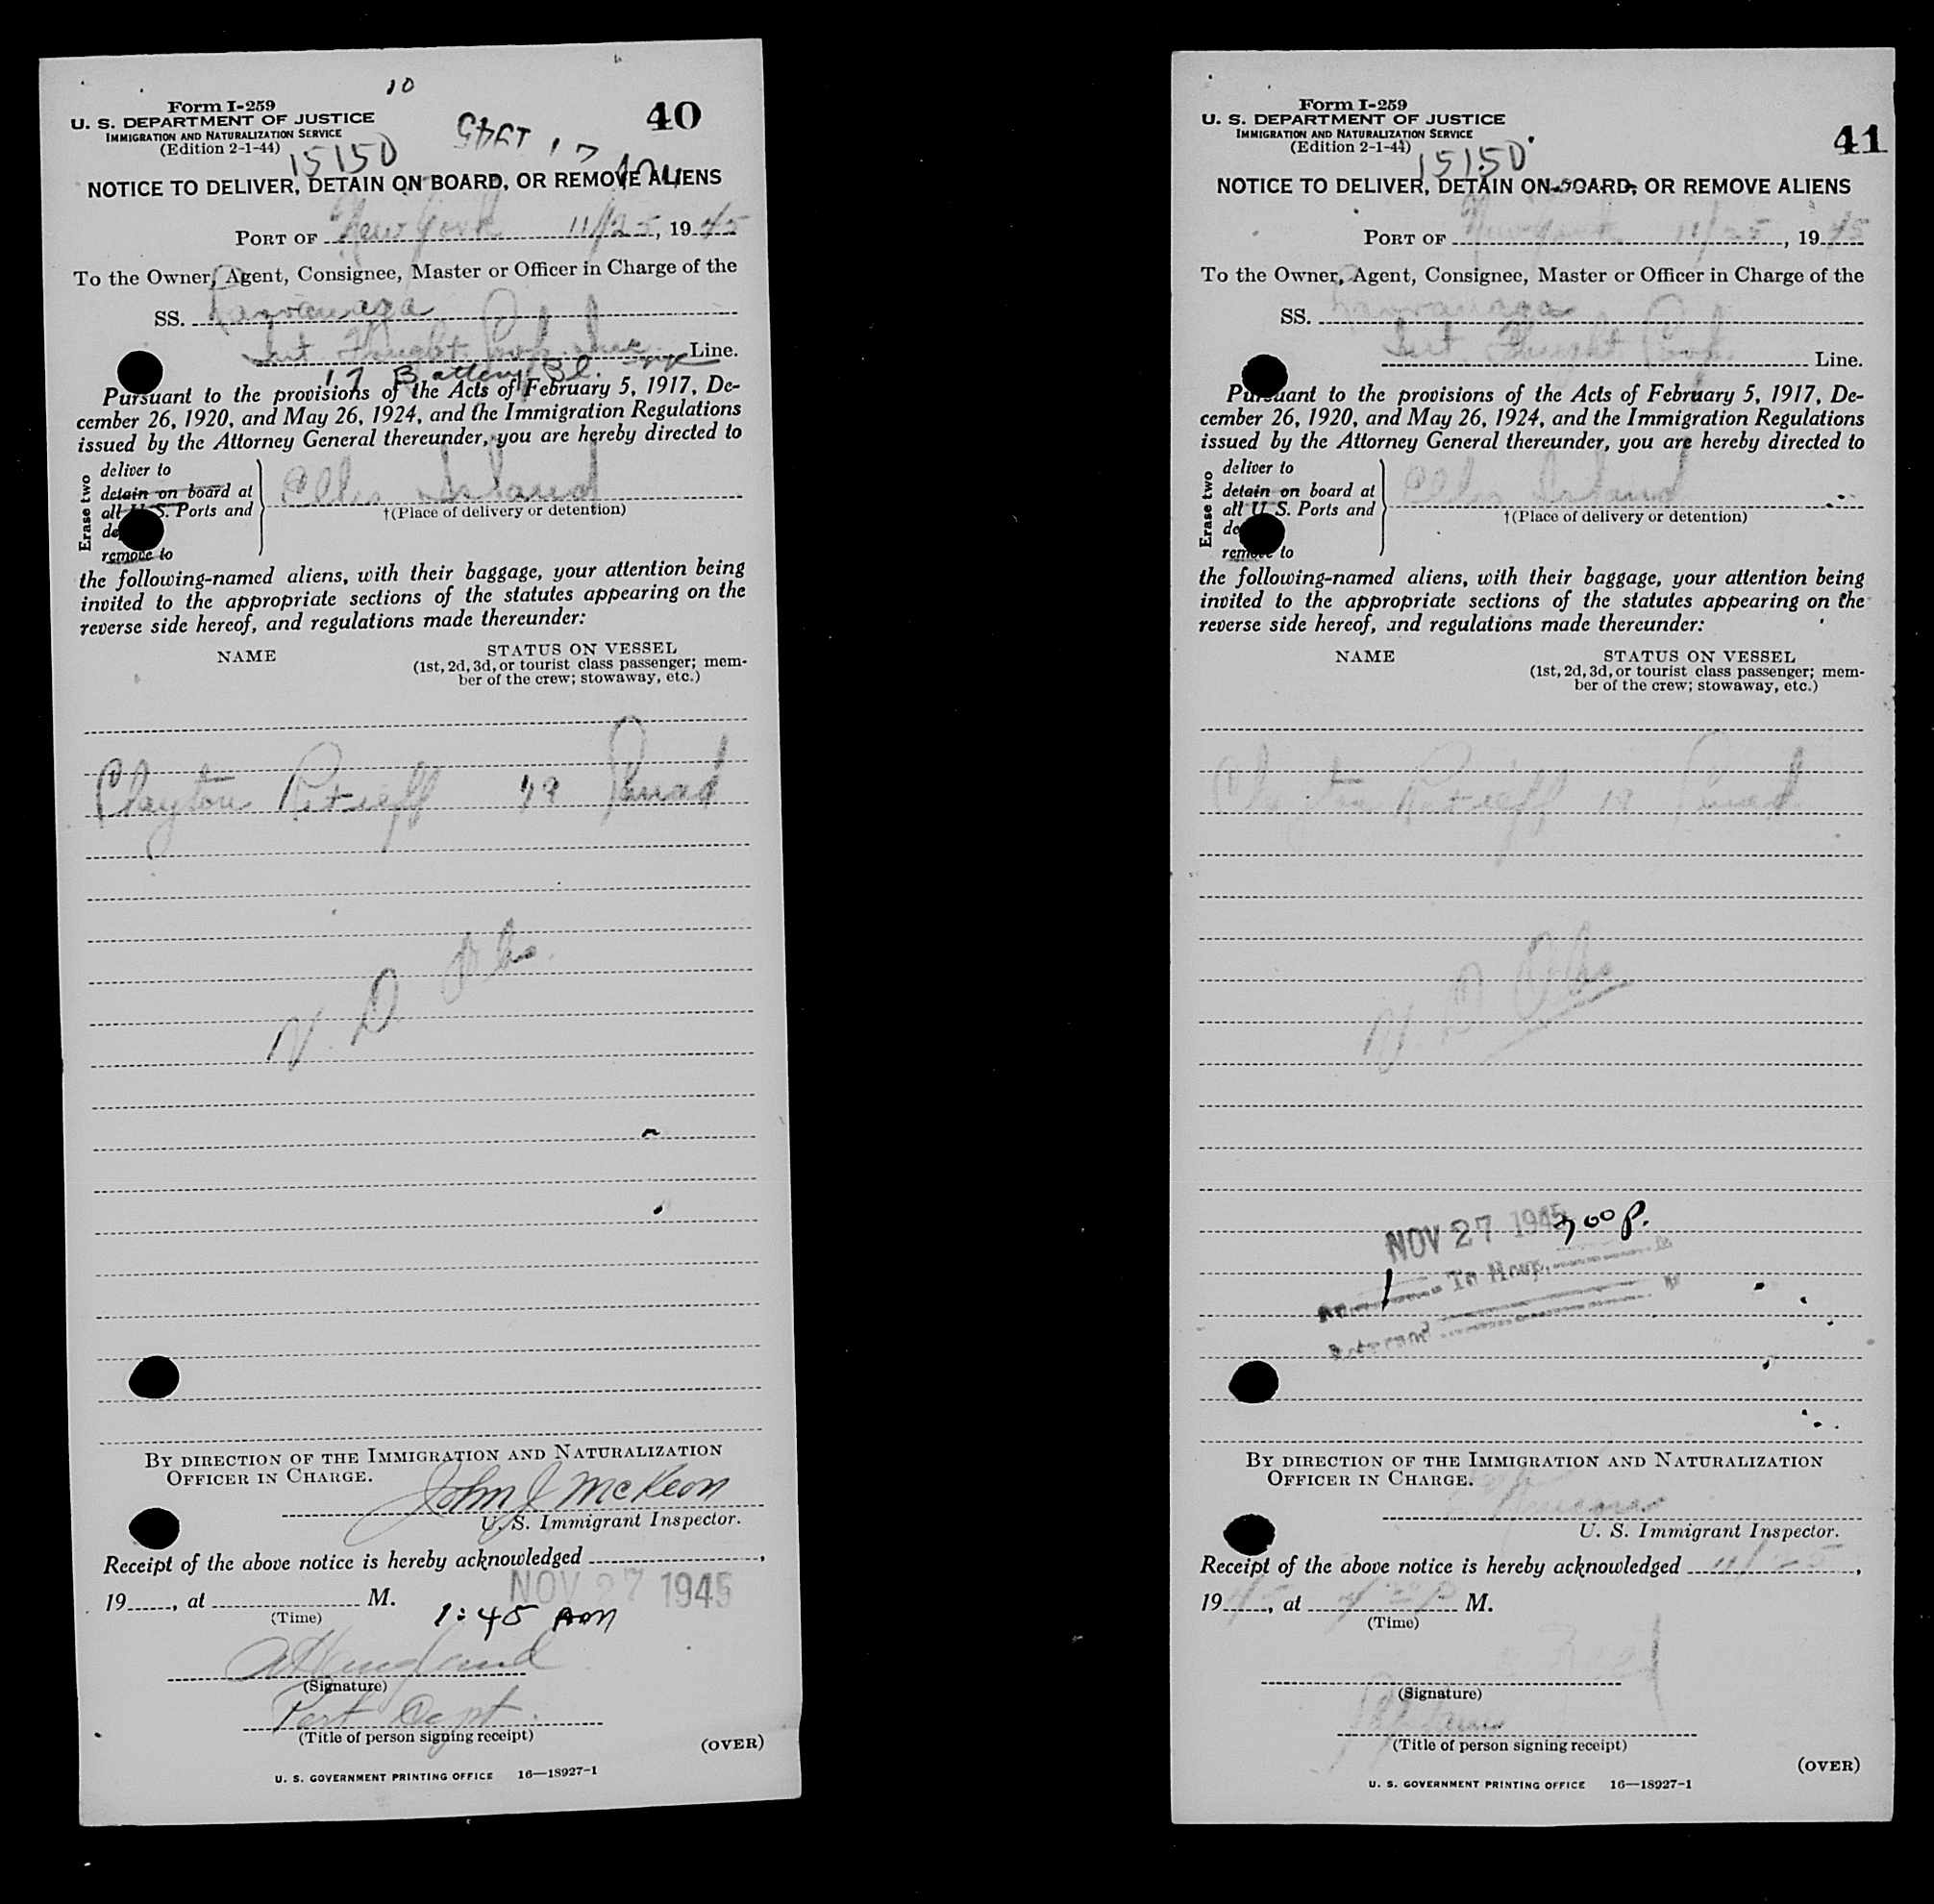 10
Form I-259
U. S. DEPARTMENT OF JUSTICE
IMMIGRATION AND NATURALIZATION SERVICE
(Edition 2-1-44)
40
15150
NOTICE TO DELIVER, DETAIN ON BOARD, OR REMOVE ALIENS
PORT OF New York 11/25, 1945
To the Owner, Agent, Consignee, Master or Officer in Charge of the
SS.
Int. Line.
17 Battery Pl.
Pursuant to the provisions of the Acts of February 5, 1917, De-
cember 26, 1920, and May 26, 1924, and the Immigration Regulations
issued by the Attorney General thereunder, you are hereby directed to
Erase two
deliver to
detain on board at
all U. S. Ports and
remove to
Ellis Island
†(Place of delivery or detention)
the following-named aliens, with their baggage, your attention being
invited to the appropriate sections of the statutes appearing on the
reverse side hereof, and regulations made thereunder:
NAME
STATUS ON VESSEL
(1st, 2d, 3d, or tourist class passenger; mem-
ber of the crew; stowaway, etc.)
Clayton Retieff 19
N. D.
BY DIRECTION OF THE IMMIGRATION AND NATURALIZATION
OFFICER IN CHARGE.
John J McKeon
U. S. Immigrant Inspector.
Receipt of the above notice is hereby acknowledged
NOV 27 1945
19, at M.
(Time)
1:45 AM
(Signature)
Port Dept.
(Title of person signing receipt)
(OVER)
U. S. GOVERNMENT PRINTING OFFICE 16—18927-1
Form I-259
U. S. DEPARTMENT OF JUSTICE
IMMIGRATION AND NATURALIZATION SERVICE
(Edition 2-1-44)
41
15150
NOTICE TO DELIVER, DETAIN ON BOARD, OR REMOVE ALIENS
PORT OF New York 11/25, 1945
To the Owner, Agent, Consignee, Master or Officer in Charge of the
SS.
Int. Line.
Pursuant to the provisions of the Acts of February 5, 1917, De-
cember 26, 1920, and May 26, 1924, and the Immigration Regulations
issued by the Attorney General thereunder, you are hereby directed to
Erase two
deliver to
detain on board at
all U. S. Ports and
remove to
Ellis Island
†(Place of delivery or detention)
the following-named aliens, with their baggage, your attention being
invited to the appropriate sections of the statutes appearing on the
reverse side hereof, and regulations made thereunder:
NAME
STATUS ON VESSEL
(1st, 2d, 3d, or tourist class passenger; mem-
ber of the crew; stowaway, etc.)
Clayton Retieff 19
N. D.
NOV 27 1945
To Hosp.
BY DIRECTION OF THE IMMIGRATION AND NATURALIZATION
OFFICER IN CHARGE.
U. S. Immigrant Inspector.
Receipt of the above notice is hereby acknowledged 11/25,
1945, at M.
(Time)
(Signature)
(Title of person signing receipt)
(OVER)
U. S. GOVERNMENT PRINTING OFFICE 16—18927-1